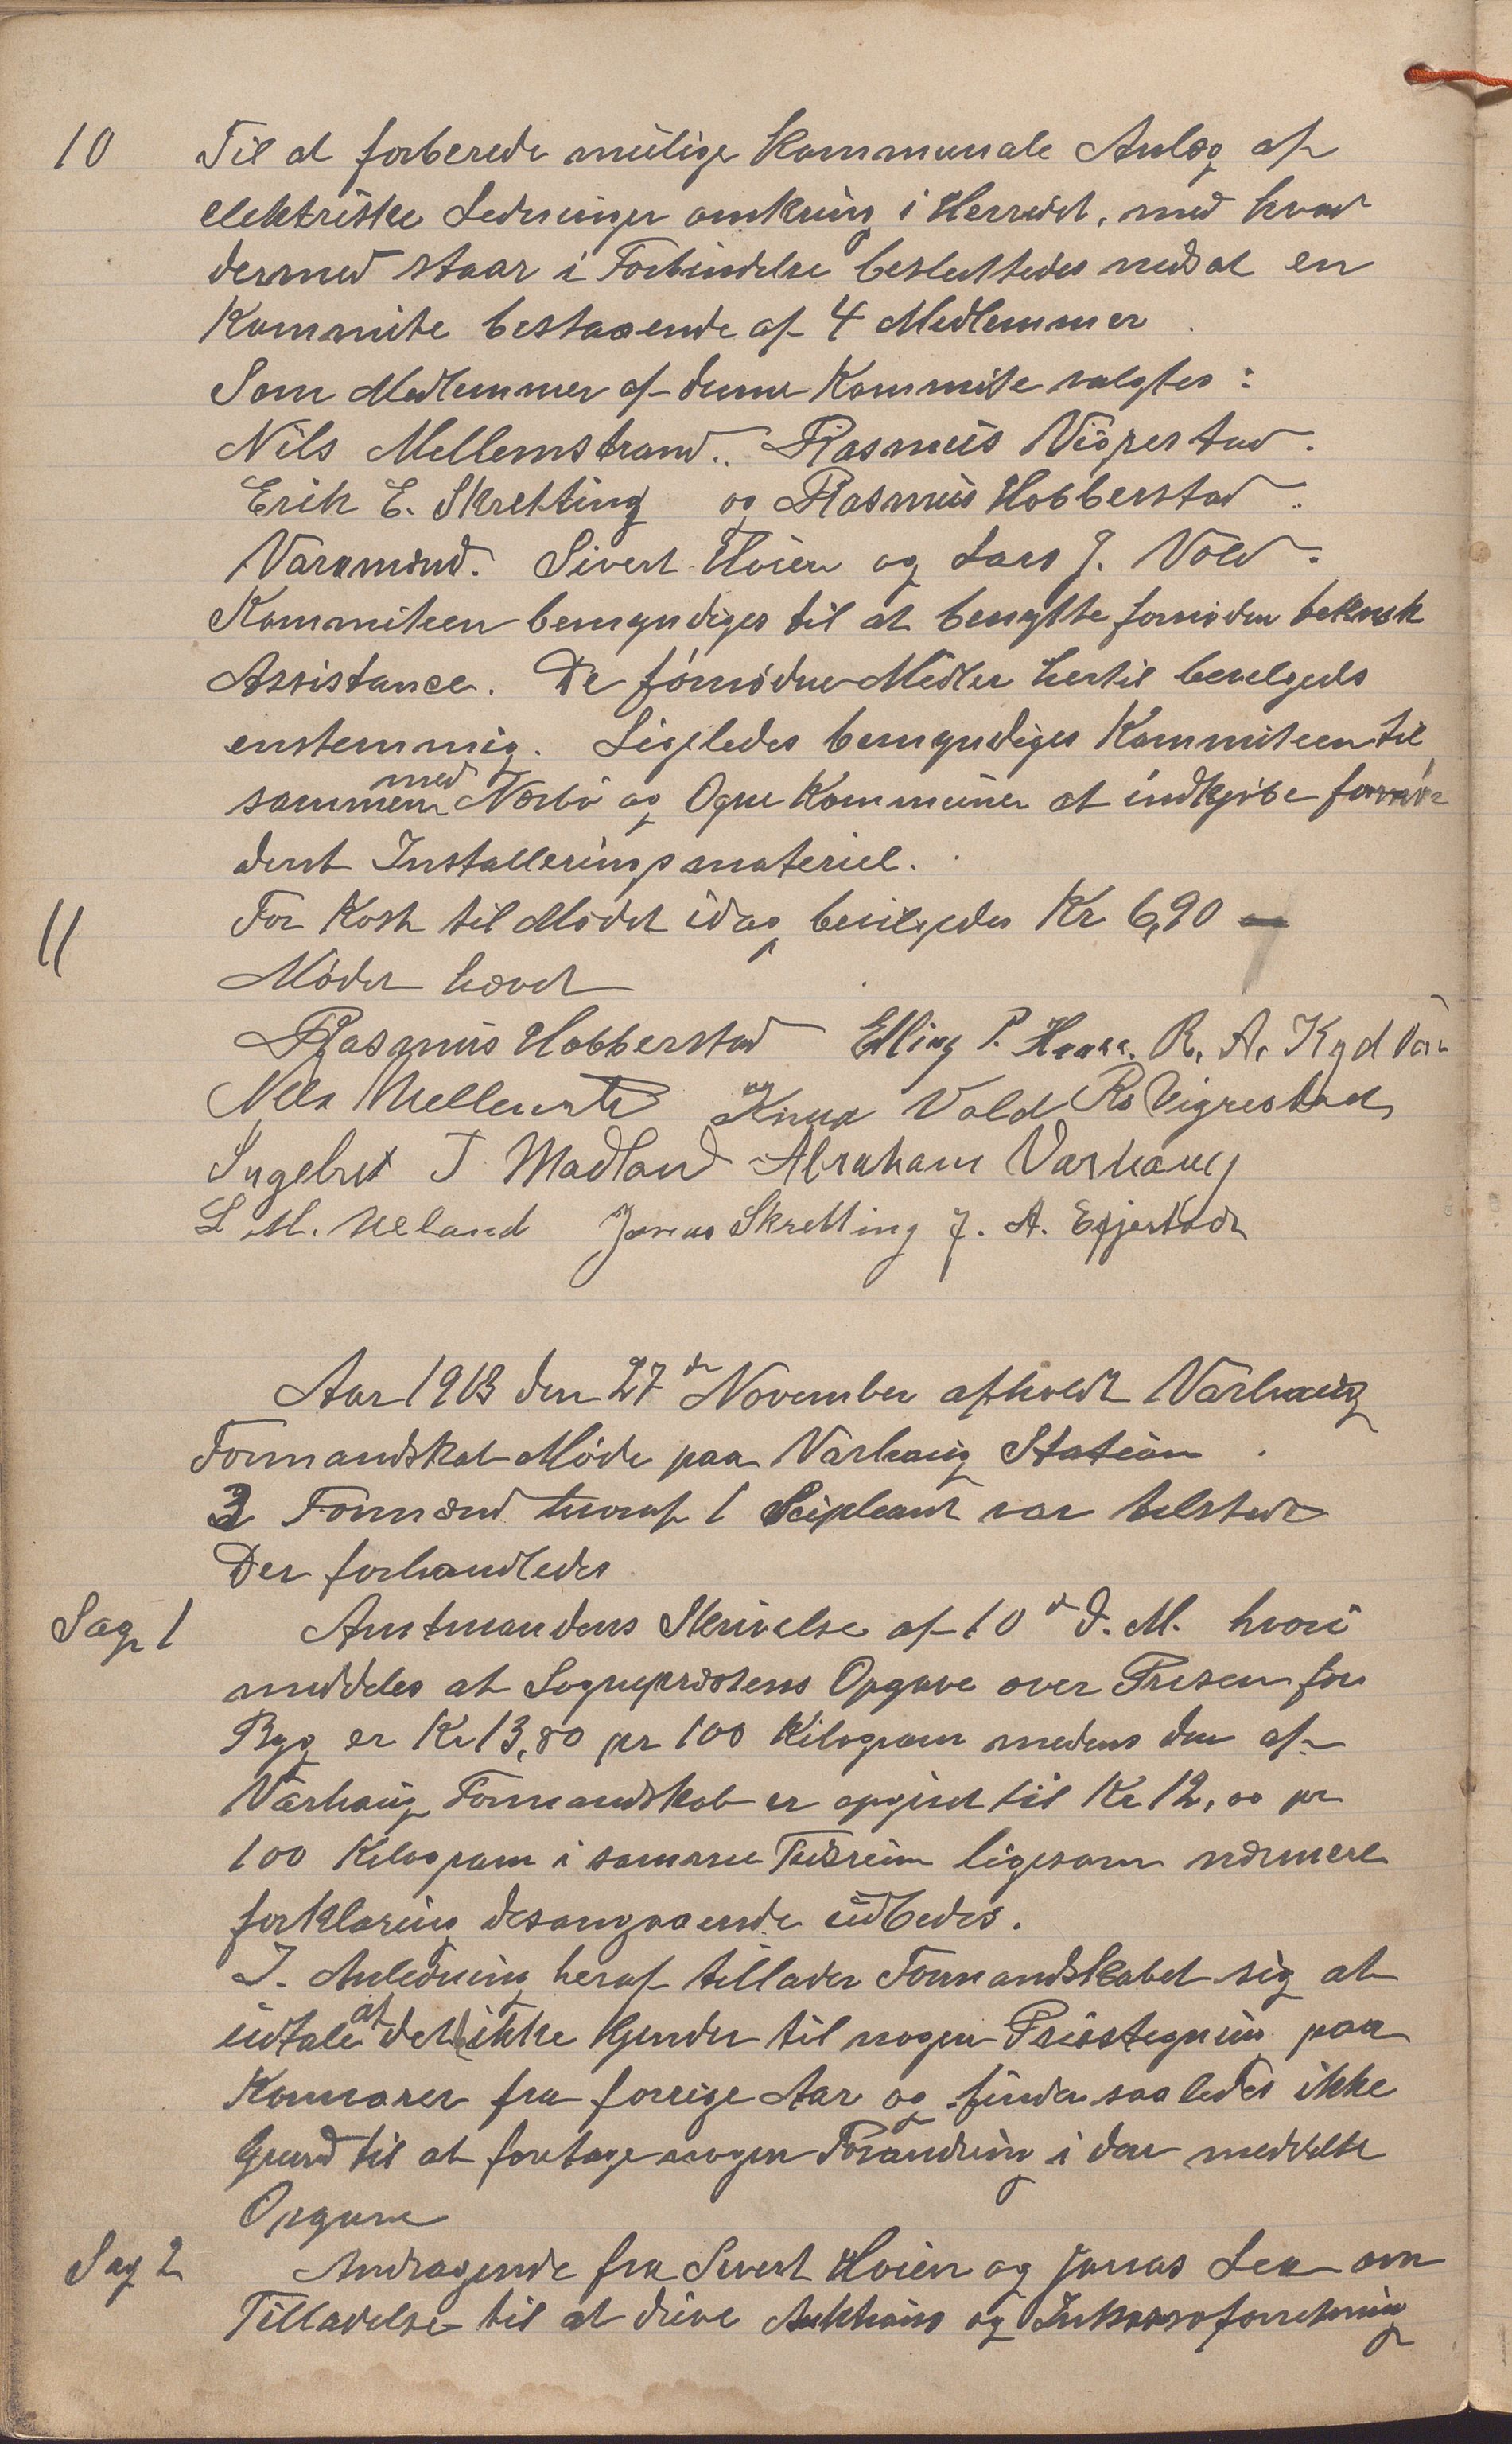 10 Til at forberede mulige kommunale Anlæg af
elektriske Ledninger omkring i Herredet, med hvad
dermed staar i Forbindelse besluttedes nedsat en
Kommite bestaaende af 4 Medlemmer.
Som Medlemmer af denne Kommite valgtes:
Nils Mellemstrand. Rasmus Vigrestad.
Erik E. Skretting og Rasmus Hobberstad.
Varamænd. Sivert Høien og Lars J. Vold.
Kommiteen bemyndiges til at benytte fornøden teknisk
Assistance. De fornødne Midler hertil bevilgeds
enstemmig. Ligeledes bemyndiges Kommiteen til
sammen med Nærbø og Ogne Kommuner at indkjøbe fornø-
dent Installeringsmateriel.
11 For Kost til Mødet idag bevilgedes Kr 6,90
Mødet hævet
Rasmus Hobberstad Elling P. Haare. R. A. Kydland
Nils Mellemstr Knud Vold Rs Vigrestad
Ingebret T Madland Abraham Varhaug
L. M. Ueland Jonas Skretting J. A. Egjestad
Aar 1913 den 27de November afholdt Varhaug
Formandskab Møde paa Varhaug Station.
3 Formænd hvoraf 1 Supleant var tilstede
Der forhandledes
Sag 1 Amtmandens Skrivelse af 10de d. M. hvori
meddeles at Sogneprestens Opgave over Prisen for
Byg er Kr 13,80 pr 100 Kilogram medens den af
Varhaug Formandskab er opgivet til Kr 12,00 pr
100 Kilogram i samme Tidsrum ligesom nærmere
forklaring desangaaende udbedes.
I Anledning heraf tillader Formandskabet sig at
udtale at det ikke kjender til nogen Prisstigning paa
Kornvarer fra forrige Aar og finder saaledes ikke
Grund til at foretage nogen Forandring i den meddelte
Opgave
Sag 2 Andragende fra Sivert Høien og Jonas Lea om
Tilladelse til at drive Auktions og Inkassoforretning